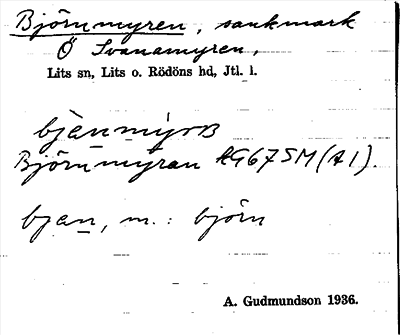 Björnmyren, sankmark
Ö Svanamyren,
Lits sn, Lits o. Rödöns hd, Jtl. l.
Björnmyran AG67SM(A1).
bjen, m.: björn
A. Gudmundson 1936.